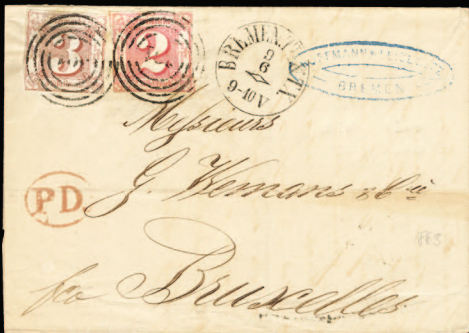 3 2
BREMEN
9
6
9-10 V
BREMEN
Messieurs
PD
G. Wemans & Cie
fco Bruxelles